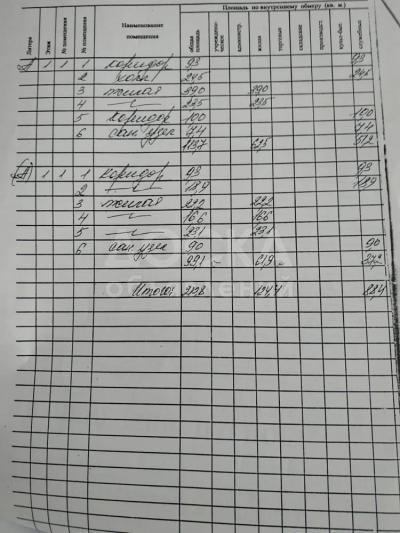 Площадь по внутреннему обмеру (кв. м.)
Литера Этаж № помещения № помещения Наименование помещения общая площадь администр. жилая торговые складские производст. культ-быт. служебных
А 1 1 1 коридор 9,3 9,3
2 24,5 24,5
3 жилая 39,0 39,0
4 —"— 23,5 23,5
5 коридор 10,0 10,0
6 сан узел 7,4 7,4
113,7 62,5 51,2
(А) 1 1 1 коридор 9,3 9,3
2 —"— 18,9 18,9
3 жилая 22,2 22,2
4 —"— 16,6 16,6
5 —"— 23,1 23,1
6 сан узел 9,0 9,0
99,1 – 61,9 – 37,2
Итого: 212,8 124,4 88,4
ДОСКА
объявлений